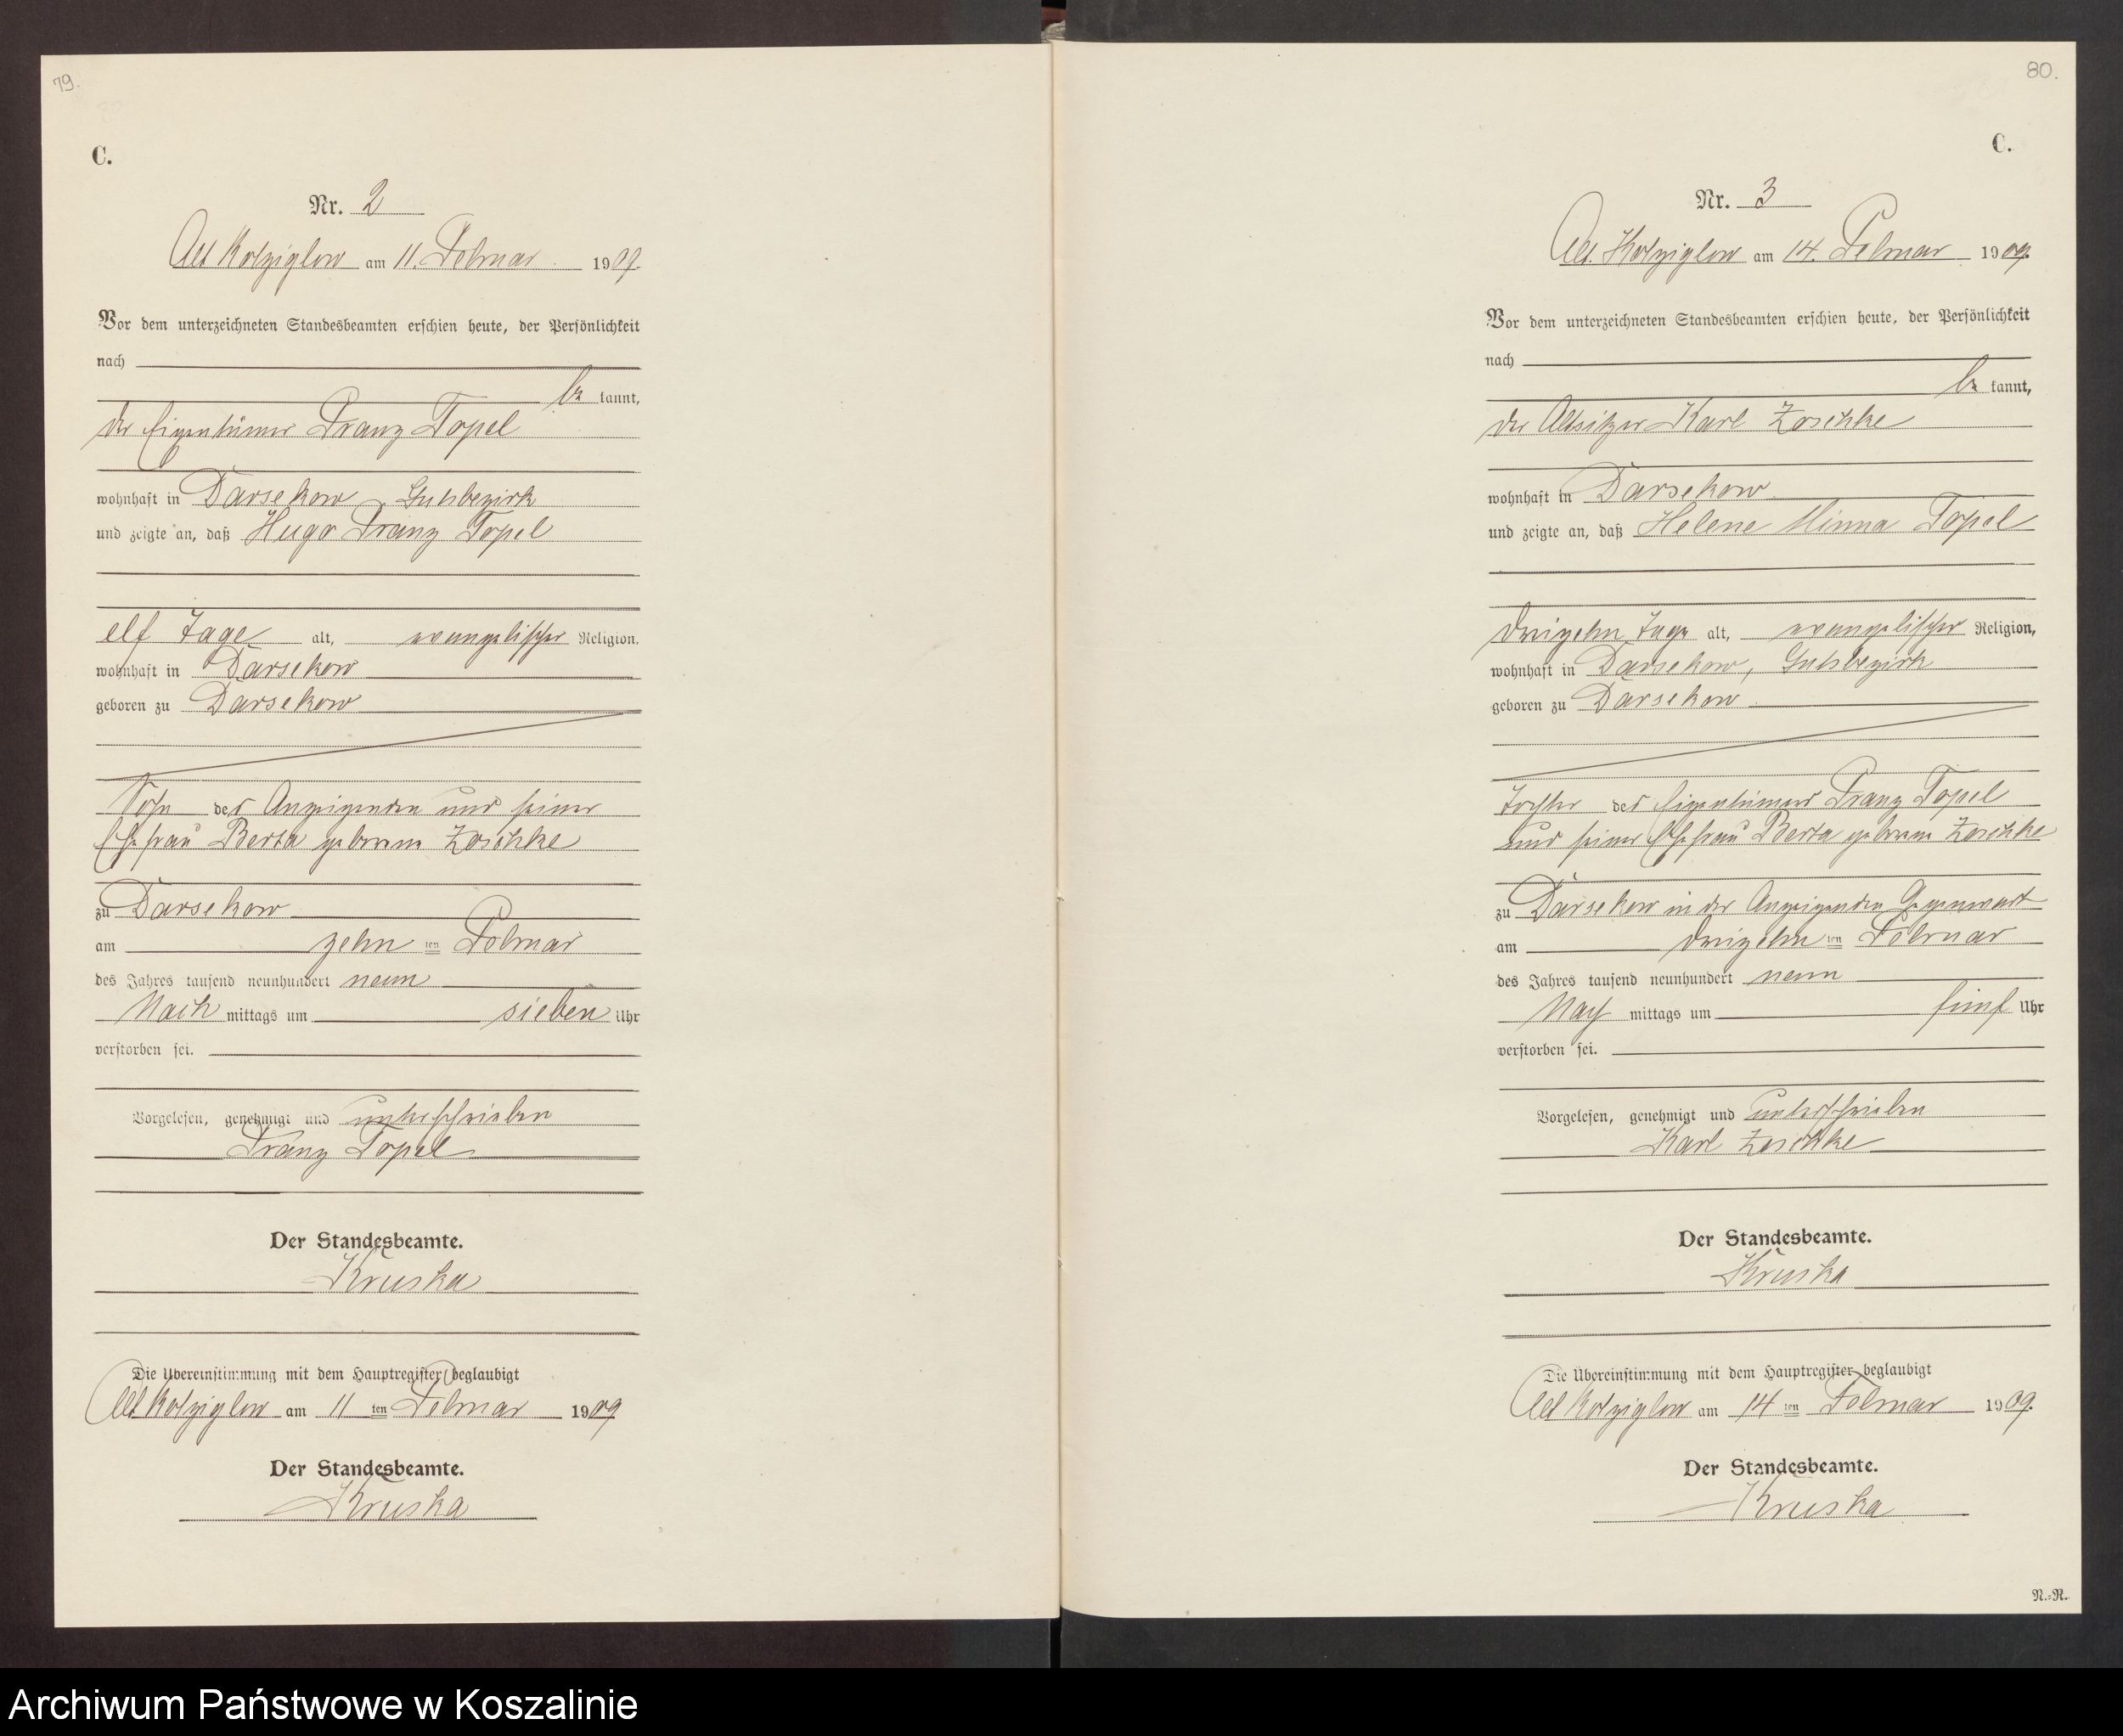 79.
C.
Nr. 2
Alt Kolziglow am 11. Februar 1909.
Vor dem unterzeichneten Standesbeamten erschien heute, der Persönlichkeit
nach
be kannt,
der Eigentümer Franz Topel
wohnhaft in Darsekow Gutsbezirk
und zeigte an, daß Hugo Franz Topel
elf Tage alt, evangelischer Religion,
wohnhaft in Darsekow
geboren zu Darsekow
Sohn des Anzeigenden und seiner
Ehefrau Berta geborene Zoschke
zu Darsekow
am zehn ten Februar
des Jahres tausend neunhundert neun
Nach mittags um sieben Uhr
verstorben sei.
Vorgelesen, genehmigt und unterschrieben
Franz Topel
Der Standesbeamte.
Kruska
Die Übereinstimmung mit dem Hauptregister beglaubigt
Alt Kolziglow am 11 ten Februar 1909
Der Standesbeamte.
Kruska
80.
C.
Nr. 3
Alt. Kolziglow am 14. Februar 1909.
Vor dem unterzeichneten Standesbeamten erschien heute, der Persönlichkeit
nach
be kannt,
der Altsitzer Karl Zoschke
wohnhaft in Darsekow
und zeigte an, daß Helene Minna Topel
dreizehn Tage alt, evangelischer Religion,
wohnhaft in Darsekow, Gutsbezirk
geboren zu Darsekow
Tochter des Eigentümers Franz Topel
und seiner Ehefrau Berta geborene Zoschke
zu Darsekow in des Anzeigenden Gegenwart
am dreizehn ten Februar
des Jahres tausend neunhundert neun
Nach mittags um fünf Uhr
verstorben sei.
Vorgelesen, genehmigt und unterschrieben
Karl Zoschke
Der Standesbeamte.
Kruska
Die Übereinstimmung mit dem Hauptregister beglaubigt
Alt Kolziglow am 14 ten Februar 1909.
Der Standesbeamte.
Kruska
N.-R.
Archiwum Państwowe w Koszalinie